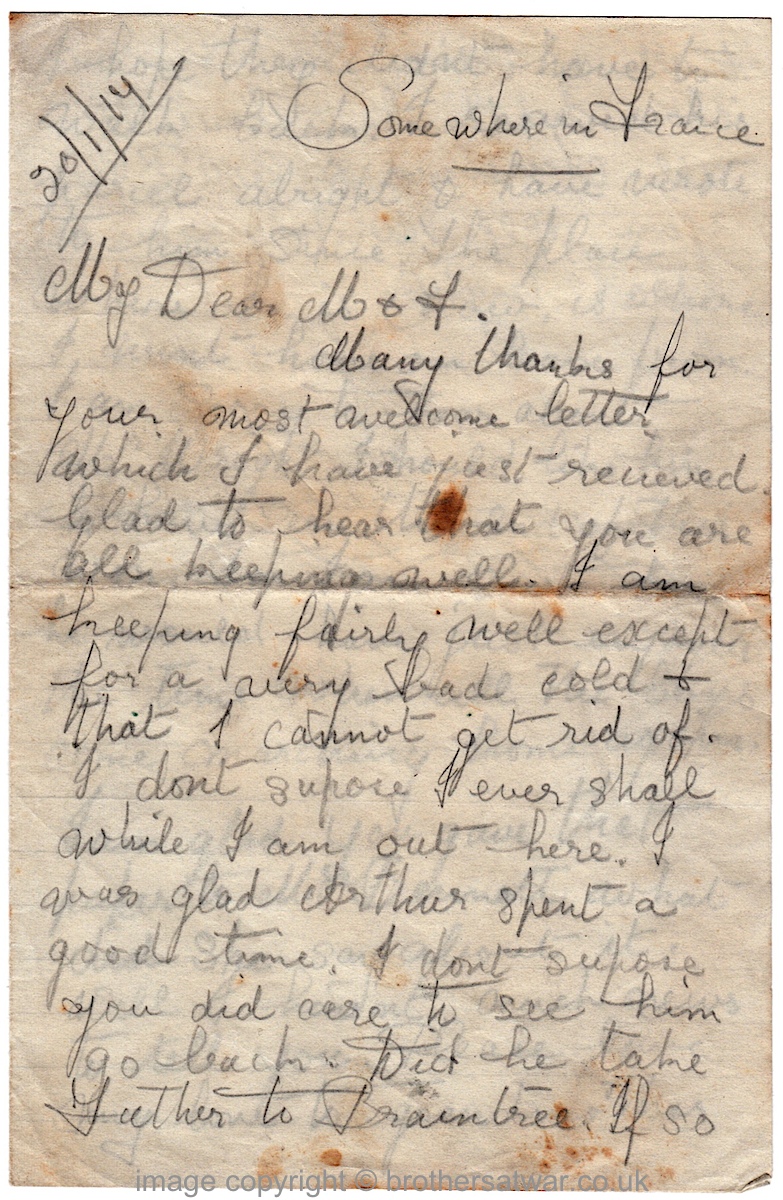 Somewhere in France
20/1/17
My Dear M & F.
Many thanks for
your most welcome letter
which I have just recieved.
Glad to hear that you are
all keeping well. I am
keeping fairly well except
for a very bad cold &
that I cannot get rid of.
I dont supose I ever shall
while I am out here. I
was glad Arthur spent a
good time. I dont supose
you did care to see him
go back. Did he take
Luther to Braintree. If so
image copyright © brothersatwar.co.uk